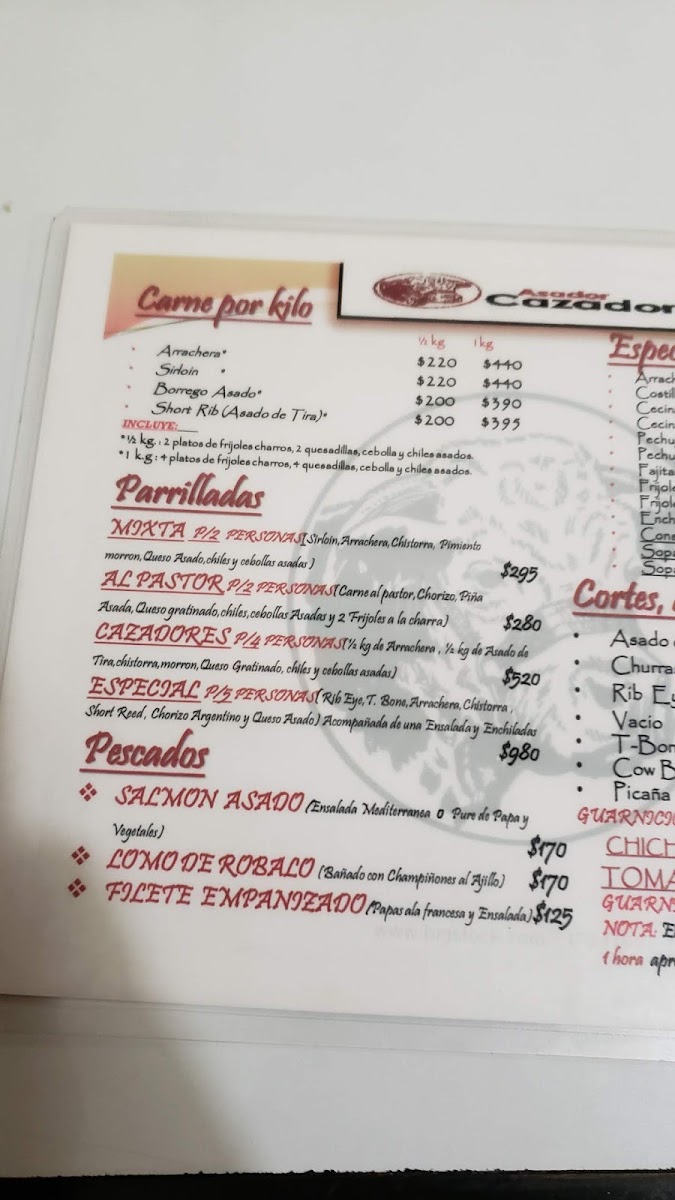 Carne por kilo
Asador
Cazador
½ kg 1kg
Arrachera* $220 $440
Sirloin * $220 $440
Borrego Asado* $200 $390
Short Rib (Asado de Tira)* $200 $395
INCLUYE:
*½ kg.: 2 platos de frijoles charros, 2 quesadillas, cebolla y chiles asados.
*1 k.g: 4 platos de frijoles charros, 4 quesadillas, cebolla y chiles asados.
Parrilladas
MIXTA P/2 PERSONAS(Sirloin, Arrachera, Chistorra, Pimiento
morron, Queso Asado, chiles y cebollas asadas)
$295
AL PASTOR P/2 PERSONAS(Carne al pastor, Chorizo, Piña
Asada, Queso gratinado, chiles, cebollas Asadas y 2 Frijoles a la charra)
$280
CAZADORES P/4 PERSONAS(½ kg de Arrachera, ½ kg de Asado de
Tira, chistorra, morron, Queso Gratinado, chiles y cebollas asadas)
$520
ESPECIAL P/5 PERSONAS( Rib Eye, T. Bone, Arrachera, Chistorra,
Short Reed, Chorizo Argentino y Queso Asado) Acompañada de una Ensalada y Enchiladas
$980
Pescados
SALMON ASADO (Ensalada Mediterranea o Pure de Papa y
Vegetales)
$170
LOMO DE ROBALO (Bañado con Champiñones al Ajillo) $170
FILETE EMPANIZADO (Papas ala francesa y Ensalada) $125
Espec
Arrach
Costill
Cecin
Cecin
Pechu
Pechu
Fajita
Frijole
Frijole
Ench
Cone
Sopa
Sopa
Cortes,
Asado
Churra
Rib Ey
Vacio
T-Bon
Cow B
Picaña
GUARNICIO
CHICH
TOMA
GUARNI
NOTA: E
1 hora apr